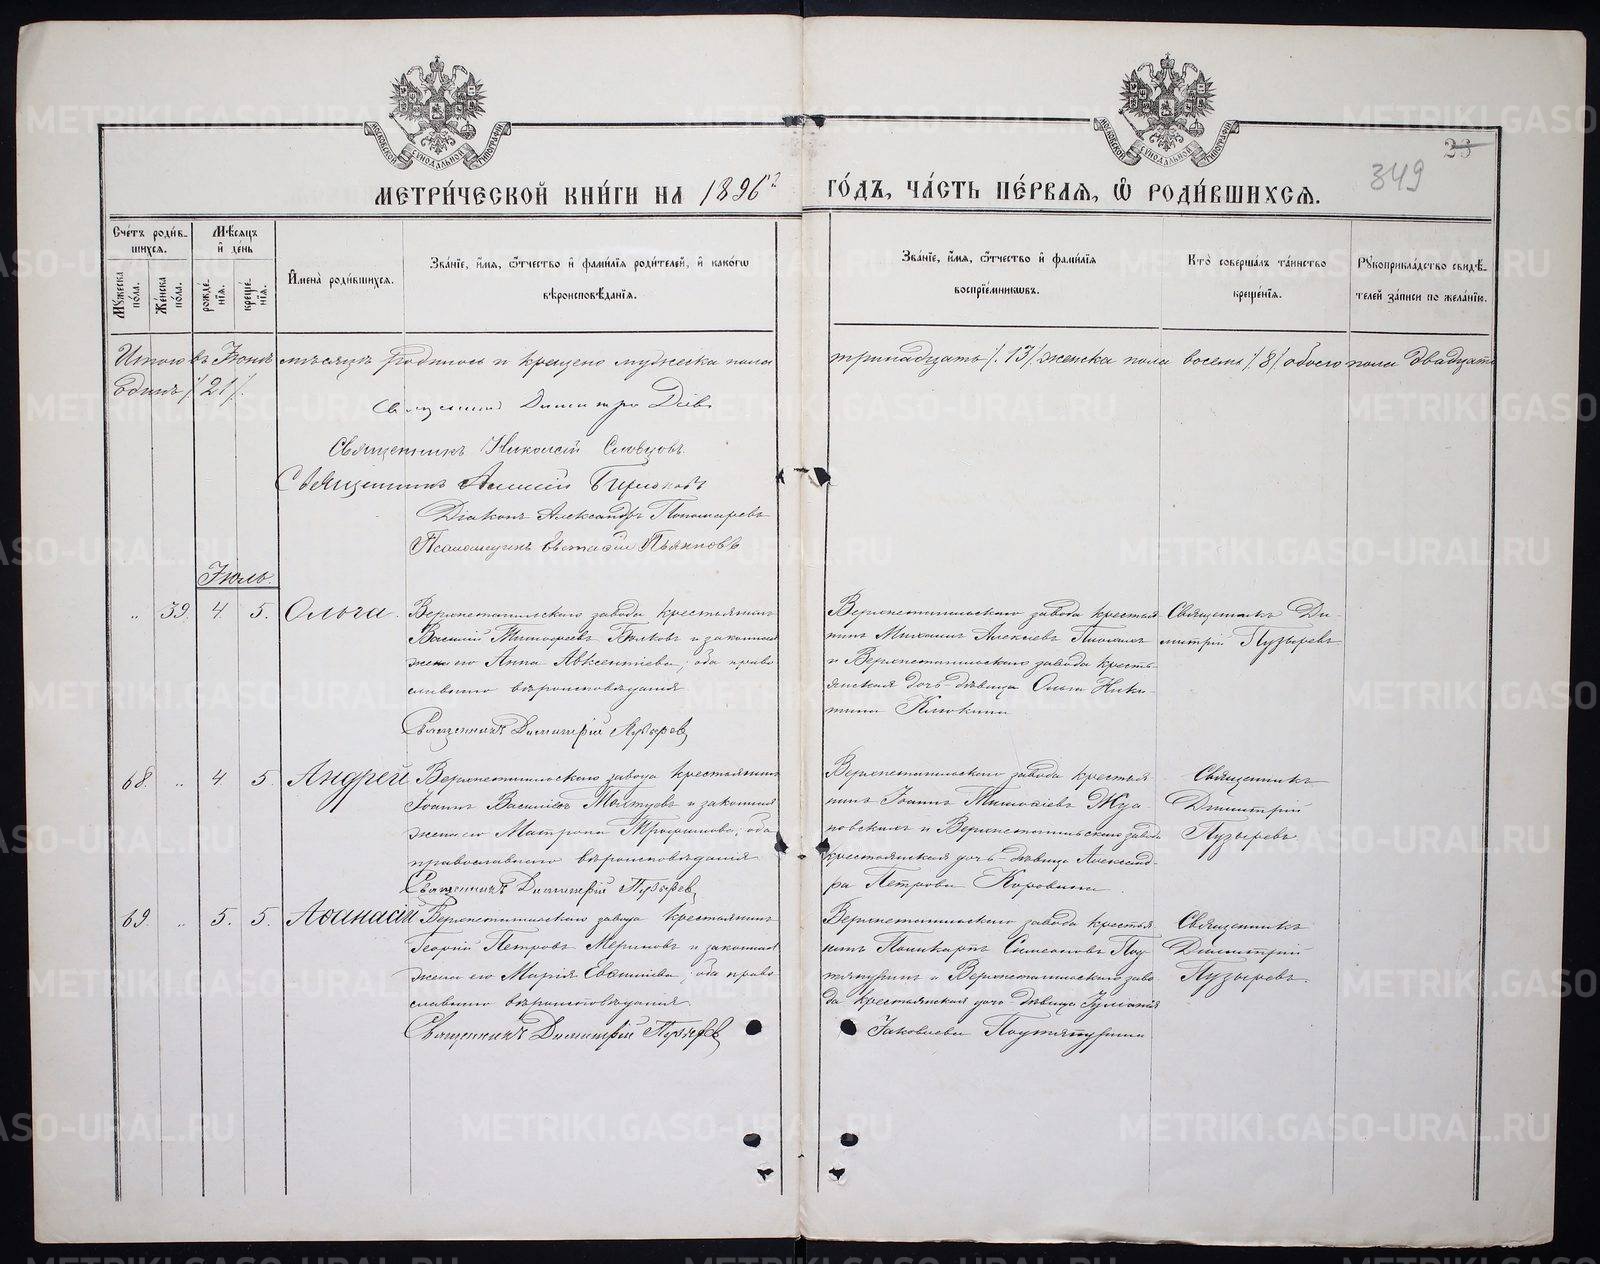 МОСКОВСКОЙ СѴНОДАЛЬНОЙ ТИПОГРАФІИ
МОСКОВСКОЙ СѴНОДАЛЬНОЙ ТИПОГРАФІИ
23
349
МЕТРИ́ЧЕСКОЙ КНИ́ГИ НА 1896й
ГО́ДЪ, ЧА́СТЬ ПЕ́РВАѦ, Ѡ РОДИ́ВШИХСѦ.
Сче́тъ роди́в-
шихся.
Мѣ́сяцъ
и де́нь
Мꙋ́жеска по́ла.
Же́нска по́ла.
рожде́-
нїѧ.
креще́-
нїѧ.
Имена̀ роди́вшихся.
Зва́нїе, и́мѧ, ѻ҆́тчество и҆ фами́лїѧ роди́телей, и҆ како́гѡ
вѣроисповѣ́данїѧ.
Зва́нїе, и́мѧ, ѻ҆́тчество и҆ фами́лїѧ
воспрїе́мникѡвъ.
Кто̀ соверша́лъ та́инство
креще́нїѧ.
Рꙋкоприкла́дство свидѣ́-
телей за́писи по жела́нїю.
Итого въ Іюнѣ мѣсяцѣ родилось и крещено мужеска пола тринадцать /. 13 /. женска пола восемь /. 8 /. обоего пола двадцать
одинъ /. 21 /.
Священникъ Димитрій
Священникъ Николай Словцовъ
Священникъ Алексій Бирюковъ
Діаконъ Александръ Пономаревъ
Псаломщикъ Евстафій
Іюль.
„ 39. 4. 5. Ольга.
Верхнетагильскаго завода крестьянинъ
Василій Тимофеевъ Бѣлковъ и законная
жена его Анна Авксентіева, оба право
славнаго вѣроисповѣданія
Священникъ Димитрій Пузыревъ
Верхнетагильскаго завода крестья
нинъ Михаилъ Алексѣевъ
и Верхнетагильскаго завода кресть-
янская дочь-дѣвица Ольга Ники-
тина Клюкина
Священникъ Ди-
митрій Пузыревъ
68. „ 4. 5. Андрей
Верхнетагильскаго завода крестьянинъ
Іоаннъ Васильевъ и законная
жена его Матрона Трофимова, оба
православнаго вѣроисповѣданія
Священникъ Димитрій Пузыревъ
Верхнетагильскаго завода крестья
нинъ Іоаннъ
и Верхнетагильскаго завода
крестьянская дочь-дѣвица Александ-
ра Петрова Коровина.
Священникъ
Димитрій
Пузыревъ
69. „ 5. 5. Аѳанасій
Верхнетагильскаго завода крестьянинъ
Георгій Петровъ Мериновъ и законная
жена его Марія Евѳиміева, оба право
славнаго вѣроисповѣданія
Священникъ Димитрій Пузыревъ
Верхнетагильскаго завода крестья
нинъ Поликарпъ Симеоновъ Под-
тяпуринъ и Верхнетагильскаго заво
да крестьянская дочь-дѣвица Іуліанія
Іаковлева
Священникъ
Димитрій
Пузыревъ.
METRIKI.GASO-URAL.RU